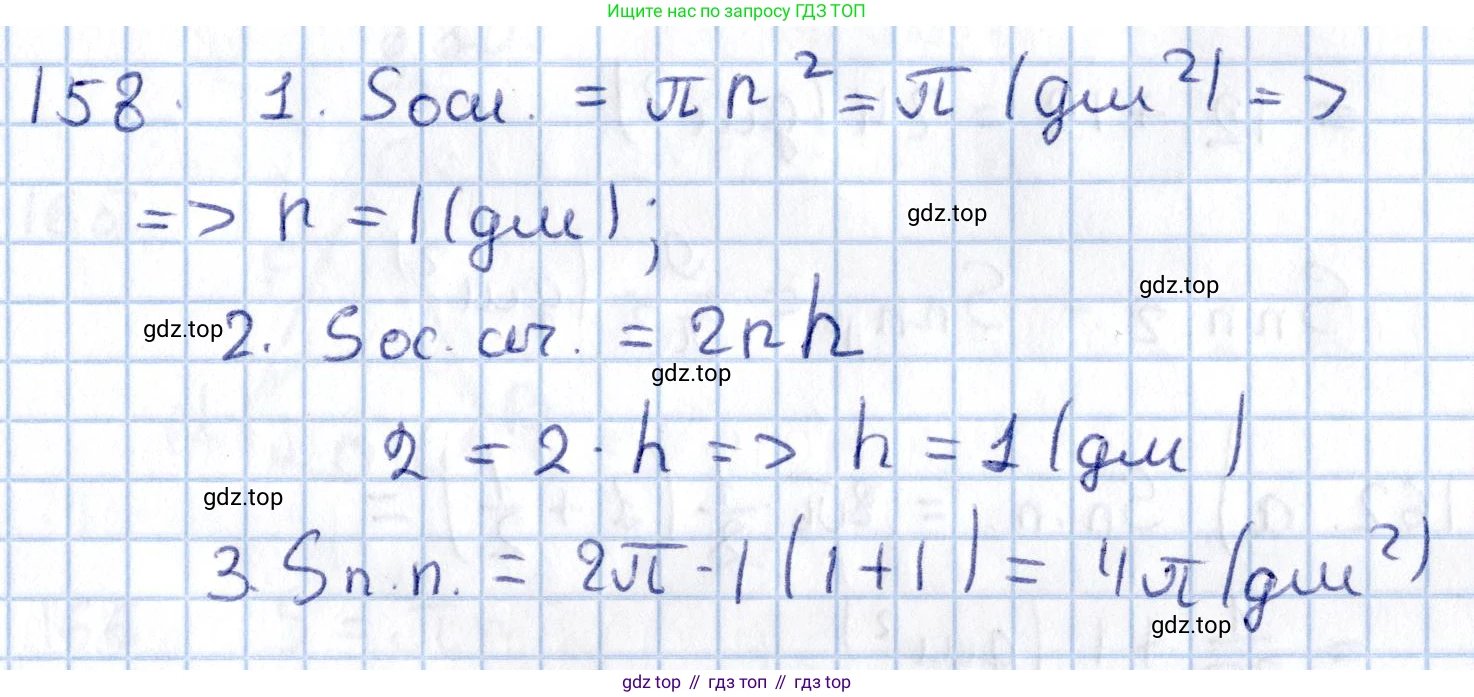 Ищите нас по запросу ГДЗ ТОП
158. 1. Sосн. = πr² = π (дм²) =>
=> r = 1 (дм);
gdz.top
gdz.top
gdz.top 2. Sос. сеч. = 2rh
gdz.top
2 = 2 · h => h = 1 (дм)
gdz.top
3. Sп.п. = 2π · 1 (1 + 1) = 4π (дм²)
gdz.top
gdz top // гдз топ // гдз top